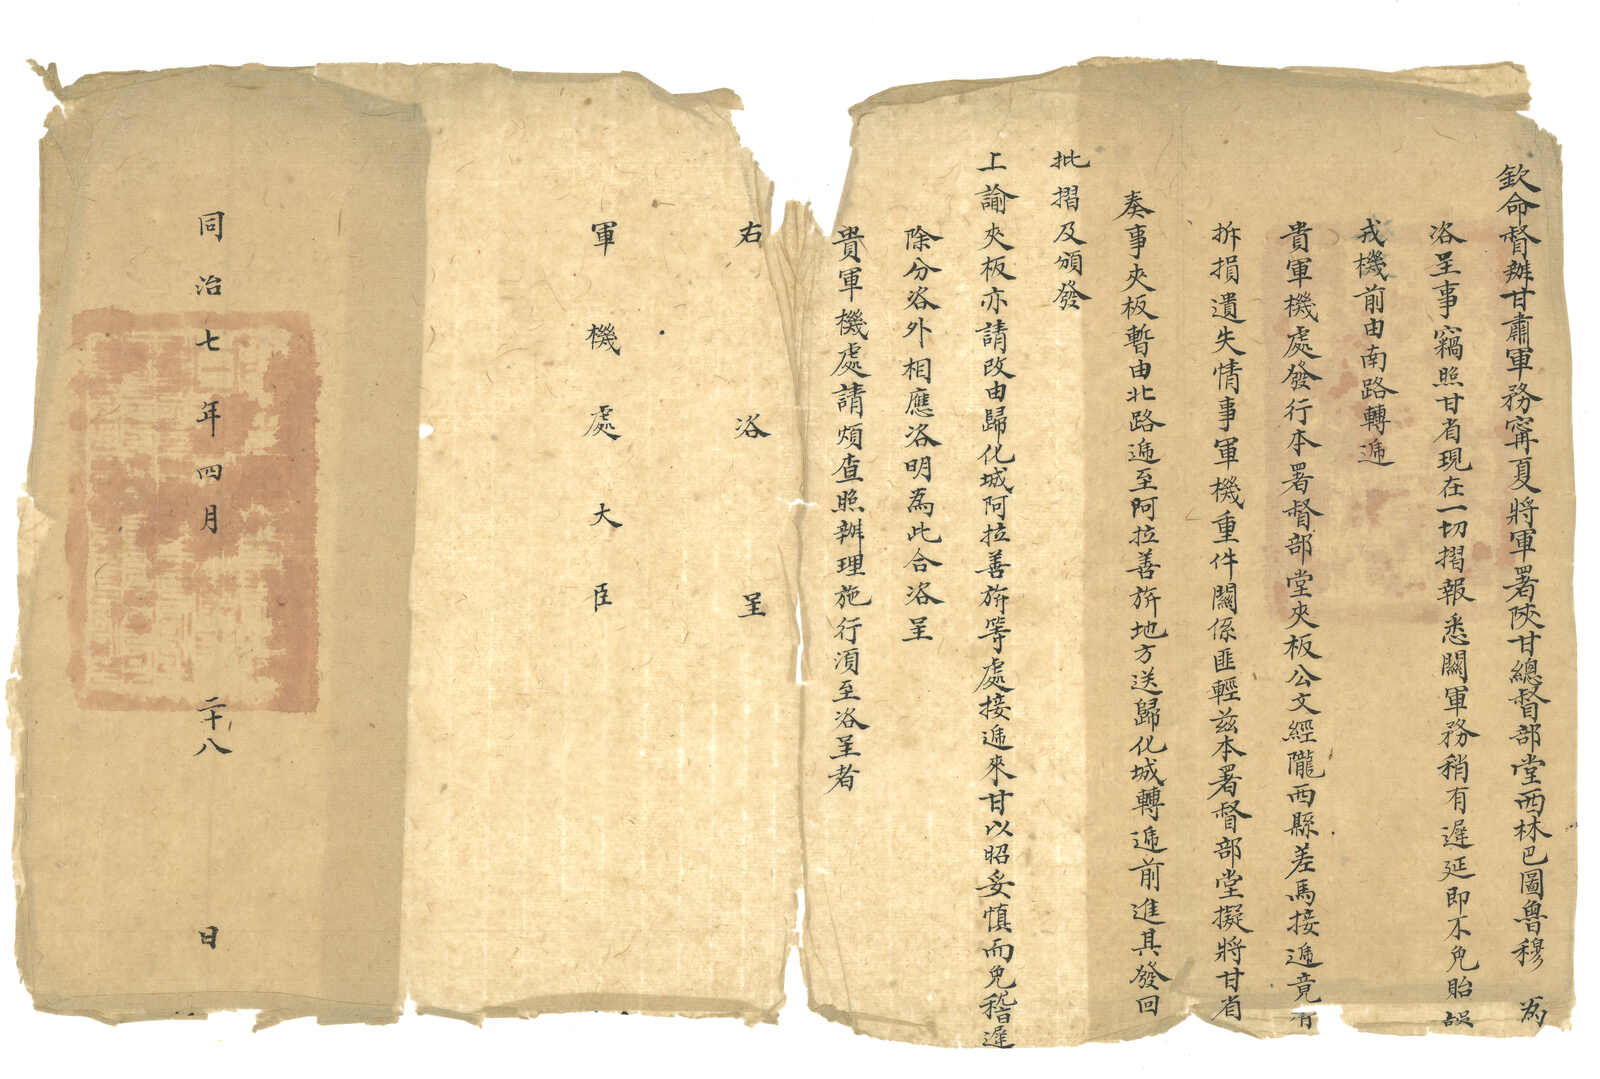 欽命督辦甘肅軍務寗夏將軍署陝甘總督部堂西林巴圖魯穆 為
咨呈事竊照甘省現在一切摺報悉關軍務稍有遲延即不免貽誤
戎機前由南路轉遞
貴軍機處發行本署督部堂夾板公文經隴西縣差馬接遞竟有
拆損遺失情事軍機重件關係匪輕兹本署督部堂擬將甘省
奏事夾板暫由北路遞至阿拉善旂地方送歸化城轉遞前進其發回
批摺及頒發
上諭夾板亦請改由歸化城阿拉善旂等處接遞來甘以昭妥慎而免稽遲
除分咨外相應咨明為此合咨呈
貴軍機處請煩查照辦理施行湏至咨呈者
右咨呈
軍機處大臣
同治七年四月二十八日